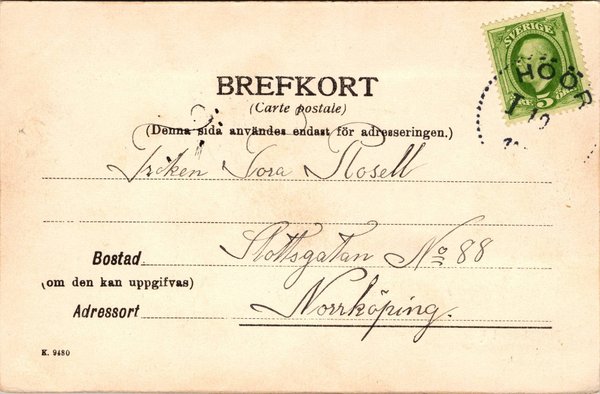 SVERIGE
HÖÖR
5
BREFKORT
(Carte postale)
(Denna sida användes endast för adresseringen.)
Fröken Tora Rosell
Bostad Slottsgatan No 88
(om den kan uppgifvas)
Adressort Norrköping.
K. 9480